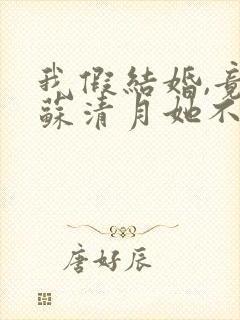 我假結婚,竟
蘇清月她不
唐好辰